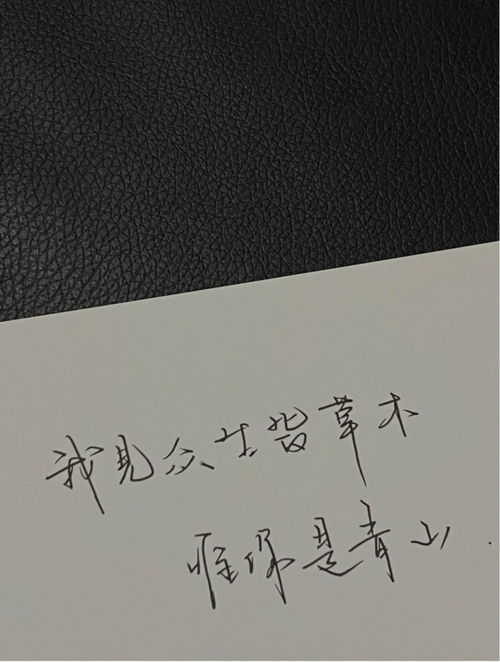 我见众生皆草木
唯你是青山.